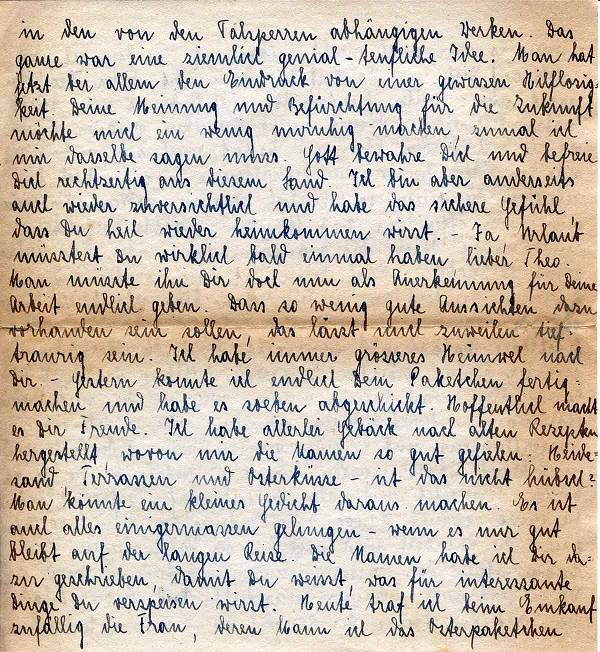 in den von den Talsperren abhängigen Werken. Das
ganze war eine ziemlich genial-teufliche Idee. Man hat
jetzt bei allem den Eindruck von einer gewissen Hilflosig-
keit. Deine Meinung und Befürchtung für die Zukunft
möchte mich ein wenig unruhig machen, zumal ich
mir dasselbe sagen muss. Gott bewahre Dich und befreie
Dich rechtzeitig aus diesem Land. Ich bin aber anderseits
auch wieder zuversichtlich und habe das sichere Gefühl,
dass Du heil wieder heimkommen wirst. - Ja, Urlaub
müsstest Du wirklich bald einmal haben, lieber Theo.
Man müsste ihn Dir doch nun als Anerkennung für Deine
Arbeit endlich geben. Dass so wenig gute Aussichten dazu
vorhanden sein sollen, das lässt mich zuweilen tief-
traurig sein. Ich habe immer grösseres Heimweh nach
Dir. - Gestern konnte ich endlich Dein Paketchen fertig-
machen und habe es soeben abgeschickt. Hoffentlich macht
es Dir Freude. Ich habe allerlei Gebäck nach alten Rezepten
hergestellt, wovon mir die Namen so gut gefielen: Heide-
sand, Terrassen und Osterküsse - ist das nicht hübsch?
Man könnte ein kleines Gedicht daraus machen. Es ist
auch alles einigermassen gelungen - wenn es nur gut
bleibt auf der langen Reise. Die Namen habe ich Dir da-
zu geschrieben, damit Du weisst, was für interessante
Dinge Du verspeisen wirst. Heute traf ich beim Einkauf
zufällig die Frau, deren Mann ich das Osterpaketchen